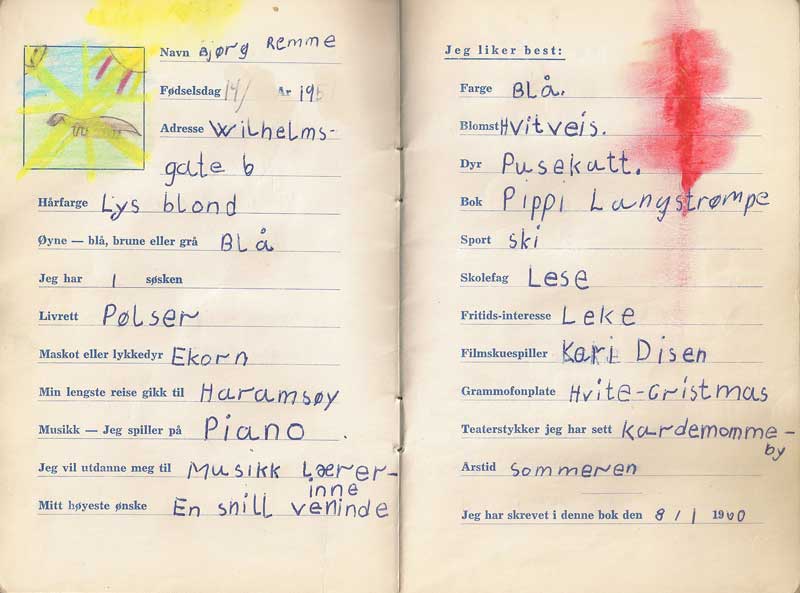 Navn Bjørg Remme
Fødselsdag 14/ År 19
Adresse Wilhelms-
gate 6
Hårfarge Lys blond
Øyne — blå, brune eller grå BLå
Jeg har 1 søsken
Livrett Pølser
Maskot eller lykkedyr Ekorn
Min lengste reise gikk til Haramsøy
Musikk — Jeg spiller på Piano.
Jeg vil utdanne meg til Musikk Lærer-
inne
Mitt høyeste ønske En snill veninde
Jeg liker best:
Farge BLå.
Blomst Hvitveis.
Dyr Pusekatt.
Bok Pippi Langstrømpe
Sport ski
Skolefag Lese
Fritids-interesse Leke
Filmskuespiller Kari Disen
Grammofonplate Hvite-Cristmas
Teaterstykker jeg har sett kardemomme-
by
Årstid sommeren
Jeg har skrevet i denne bok den 8/1 19